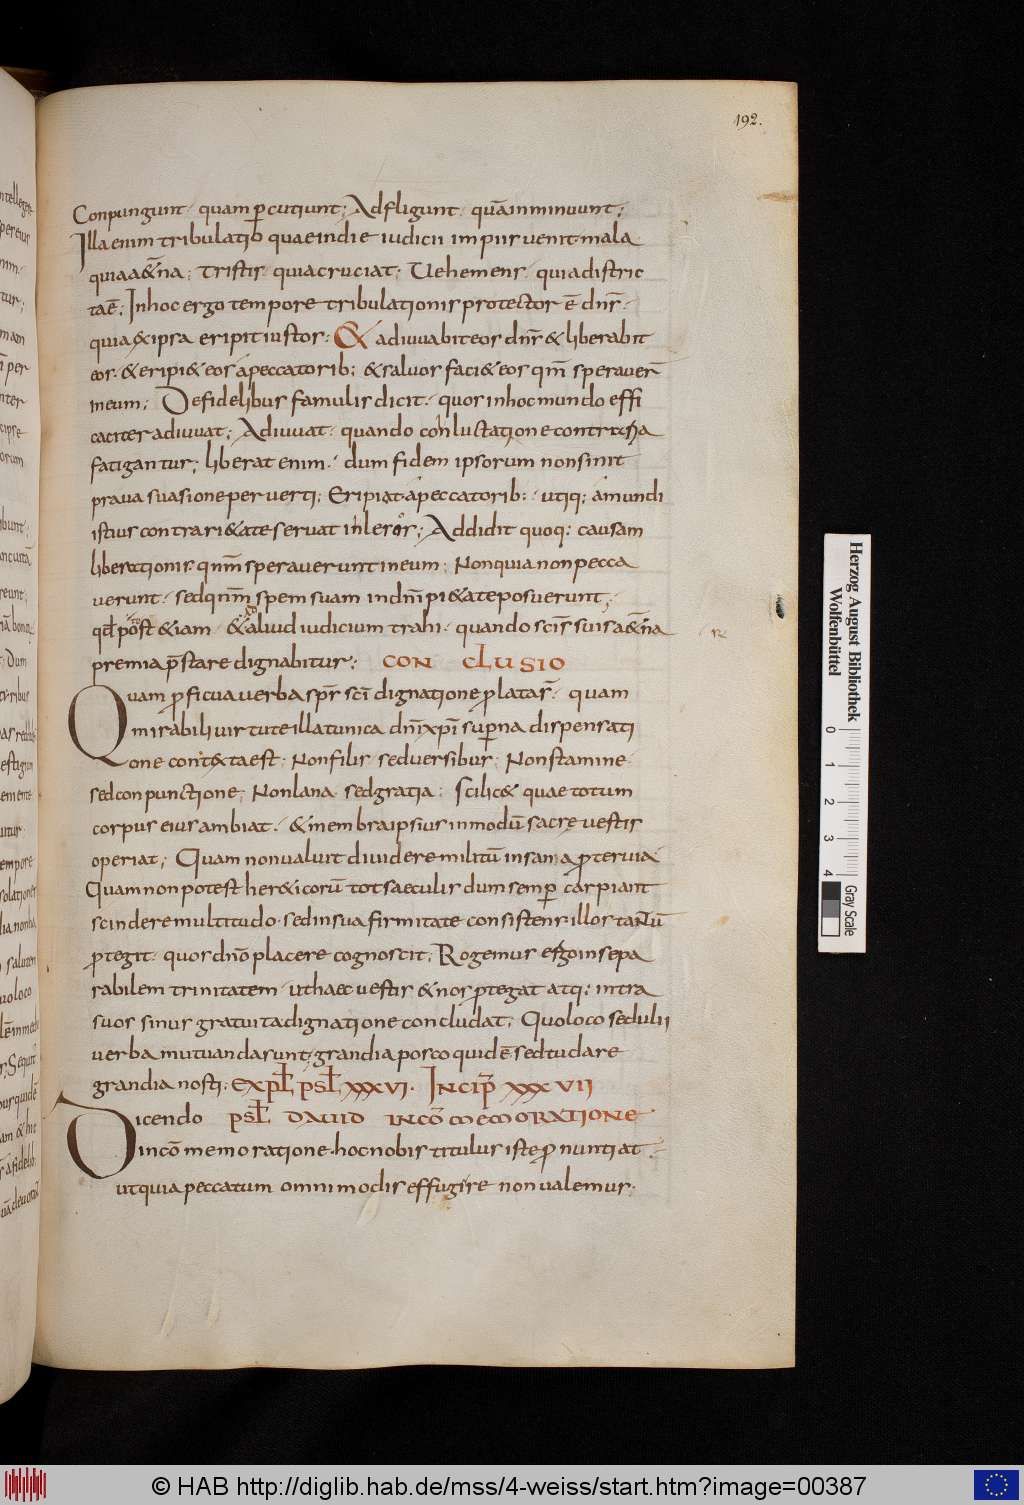 192.
Conpungunt · quam ꝑcutiunt; Adfligunt · quā inminuunt;
Illa enim tribulatio quae in die iudicii impiis uenit · mala
quia a&̄na; Tristis · quia cruciat; Uehemens · quia distric
ta ē; In hoc ergo tempore tribulationis protector ē dn̄s ·
quia & ipsa eripit iustos: & adiuuabit eos dn̄s & liberabit
eos · & eripi& eos a peccatorib; & saluos faci& eos qm̄ sperauer̄
in eum; De fidelibus famulis dicit · quos in hoc mundo effi
caciter adiuuat; Adiuuat · quando conluctatione contraria
fatigantur; liberat enim · dum fidem ipsorum non sinit
praua suasione peruerti; Eripiat a peccatorib: · utiq; a mundi
istius contrari&ate seruat inlesos; Addidit quoq: causam
liberationis · qnm̄ sperauerunt in eum; Non quia non pecca
uerunt · sed qnm̄ spem suam in dnī pi&ate posuerunt;
qđ post &iam · & ad aliud iudicium trahi · quando scīs suis a&̄na
premia p̄stare dignabitur; CONCLUSIO
Quam ꝓficua uerba sp̄s scī dignatione ꝓlata s̄ · quam
mirabili uirtute illa tunica dnī xp̄i suꝑna dispensati
one contexta est; Non filis sed uersibus; Non stamine
sed conpunctione; Non lana sed gratia; Scilic& quae totum
corpus eius ambiat · & membra ipsius in modū sacrę uestis
operiat; Quam non ualuit diuidere militū insania ꝓteruia
Quam non potest her&icorū tot saeculis dum semꝑ carpiant
scindere multitudo · sed in sua firmitate consistens illos tantū
ꝓtegit · quos dn̄o placere cognoscit; Rogemus ergo insepa
rabilem trinitatem · ut haec uestis & nos ꝓtegat atq; intra
suos sinus gratuita dignatione concludat; Quo loco sedulii
uerba mutuanda sunt; grandia posco quidē sed tu dare
grandia nosti; EXPL PSL XXXVI · INCIP XXXVII
Dicendo PSL DAUID IN COMMEMORATIONE
in cōmemoratione · hoc nobis titulus iste ꝓnuntiat ·
ut quia peccatum omnimodis effugire non ualemus;
Herzog August Bibliothek
Wolfenbüttel
0 1 2 3 4
Gray Scale
© HAB http://diglib.hab.de/mss/4-weiss/start.htm?image=00387